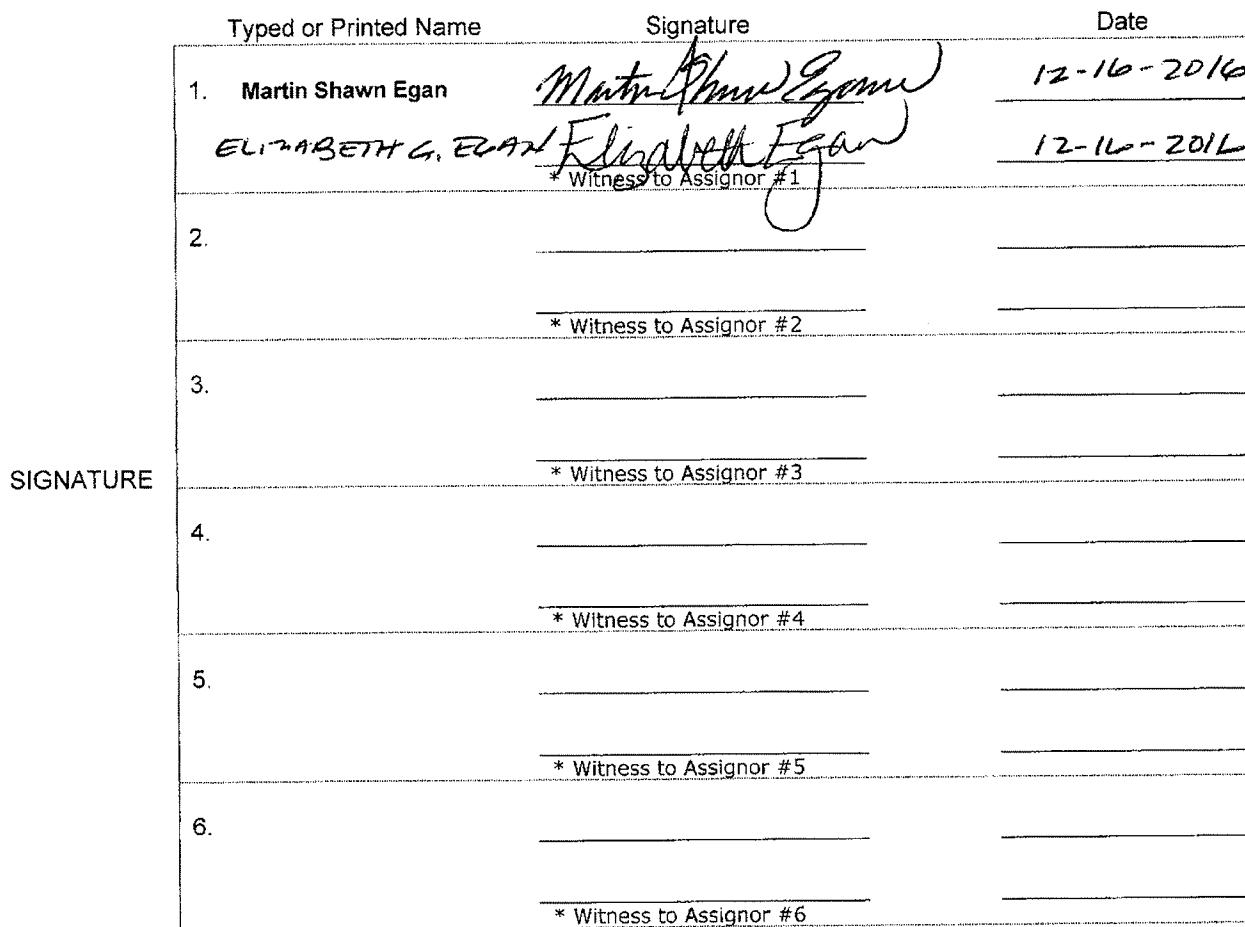 Typed or Printed Name Signature Date
1. Martin Shawn Egan Martin Shawn Egan 12-16-2016
ELIZABETH G. EGAN Elizabeth Egan 12-16-2016
* Witness to Assignor #1
2.
* Witness to Assignor #2
3.
* Witness to Assignor #3
SIGNATURE
4.
* Witness to Assignor #4
5.
* Witness to Assignor #5
6.
* Witness to Assignor #6